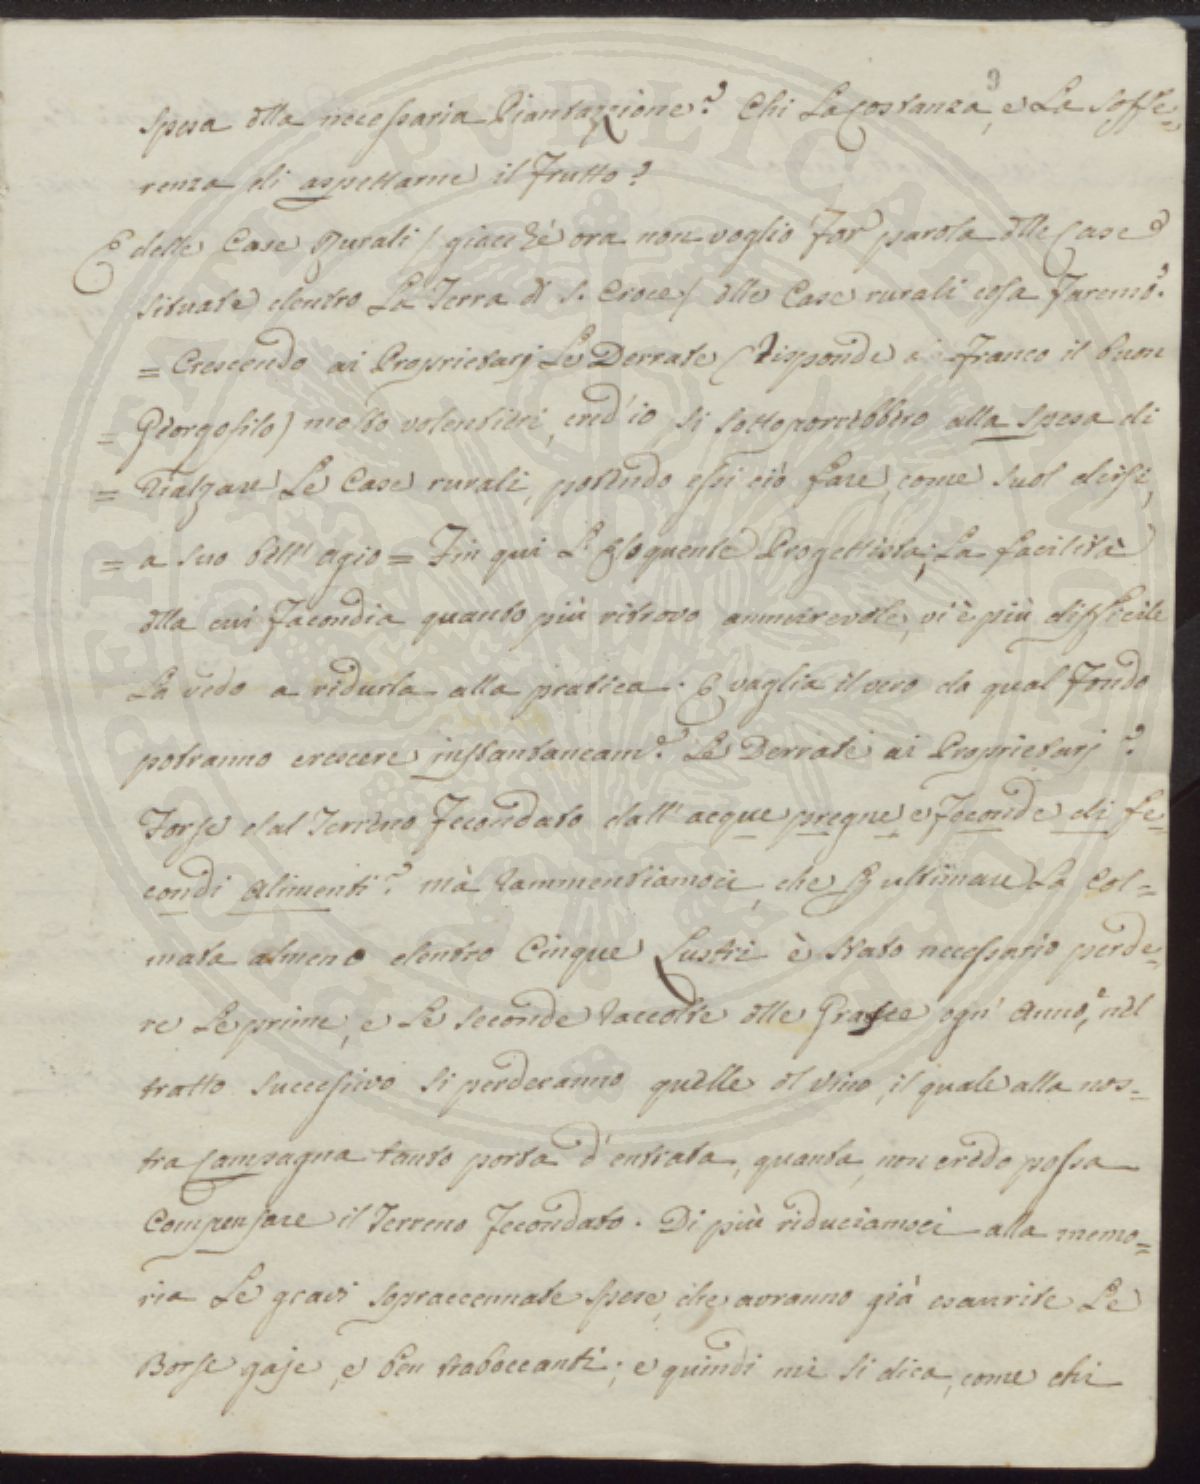 9
spesa dlla necessaria Piantazzione? Chi La Costanza, e La Soffe=
renza di aspettarne il Frutto?
E delle Case Rurali / giacchè ora non voglio far parola dlle Case
situate dentro La Terra di S. Croce / dlle Case rurali cosa Faremo?
= Crescendo ai Proprietarj Le Derrate (Risponde il Franco il buon
= Georgofilo) molto volentieri, cred'io, si sottoporrebbero alla spesa di
= Rialzare Le Case rurali, potendo essi ciò fare, come suol dirsi,
= a suo bell'agio = Fin qui L'Eloquente Progettista; La facilità
dlla cui Facondia quanto più ritrovo ammirevole, vi è più difficile
La vedo a ridurla alla pratica. E vaglia il vero da qual Fondo
potranno crescere instantaneam.e Le Derrate ai Proprietarj?
Forse dal Terreno Fecondato dall'acque pregne e feconde di fe=
condi alimenti? mà Rammentiamoci, che p ultimare La Col=
mata almeno dentro Cinque Lustri è stato necessario perde=
re Le prime, e Le seconde Raccolte dlle Grasce ogn'Anno, nel
tratto successivo si perderanno quelle dl vino, il quale alla nos=
tra Campagna tanto porta d'entrata, quanta, non credo possa
Compensare il Terreno Fecondato. Di più riduciamoci alla memo=
ria Le gravi sopraccennate spese, che avranno già esaurite Le
Borse gaje, e ben traboccanti; e quindi mi si dica, come chi